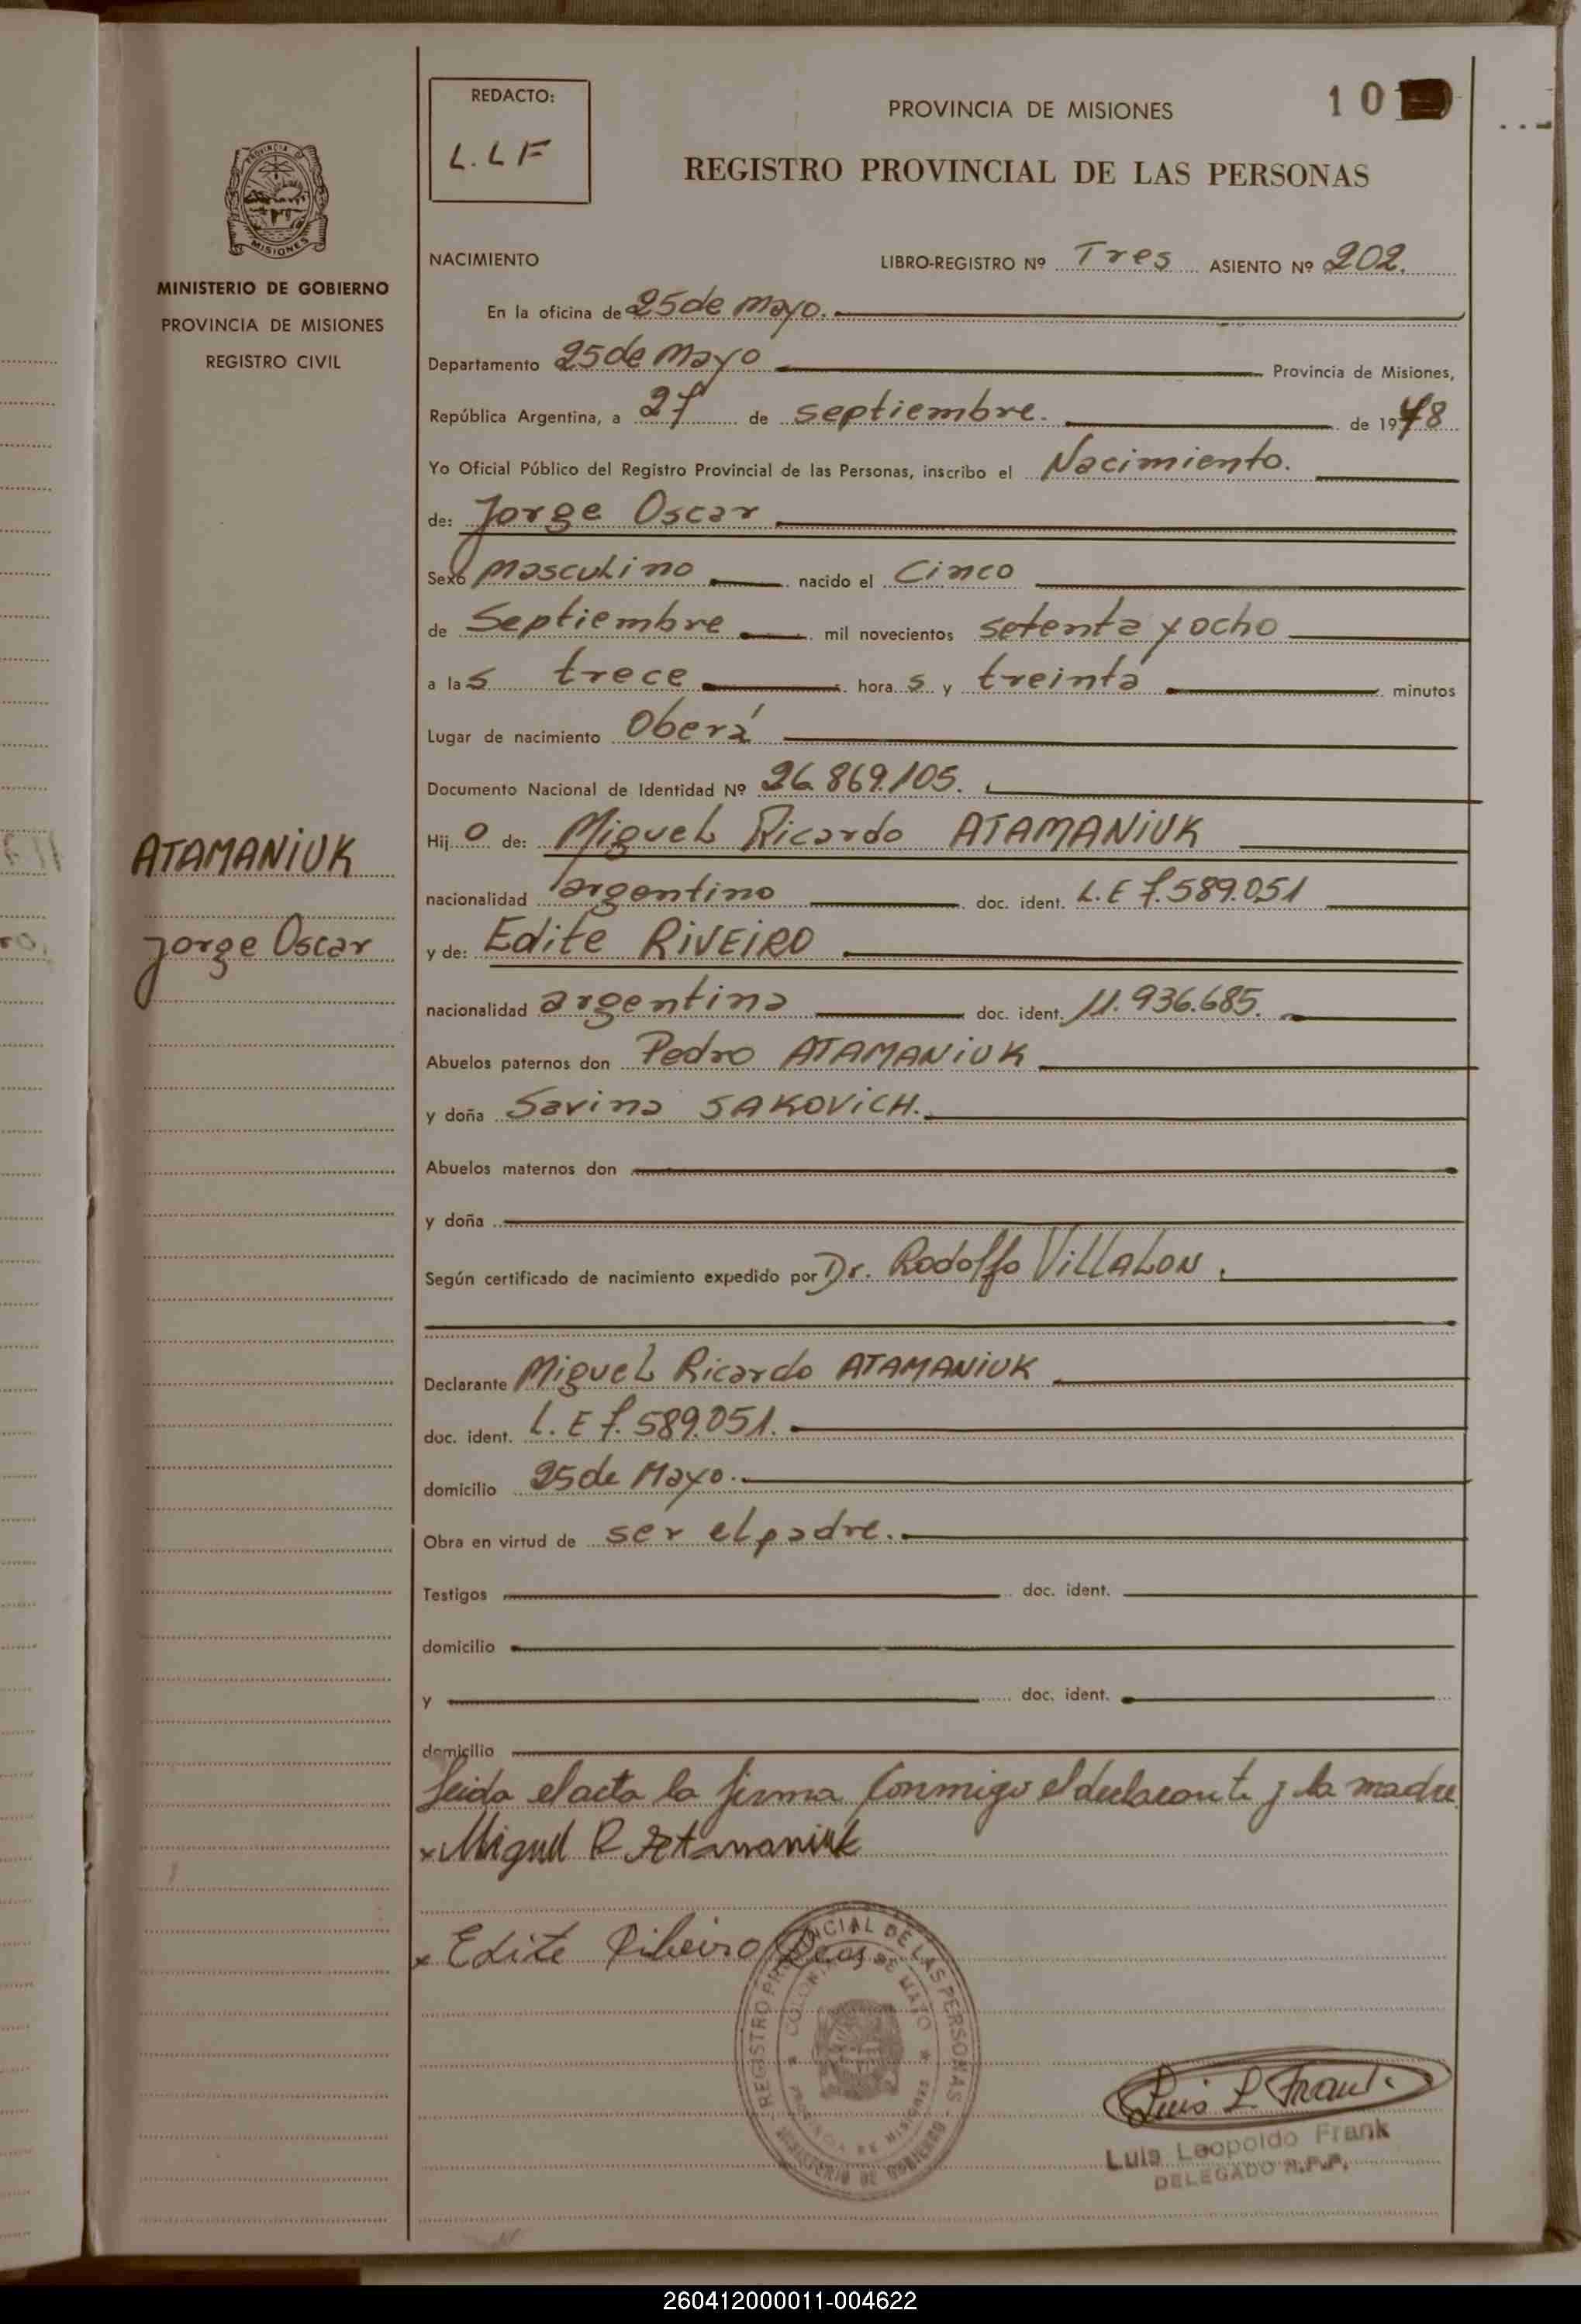 REDACTO:
L.LF
PROVINCIA DE MISIONES
10
REGISTRO PROVINCIAL DE LAS PERSONAS
PROVINCIA DE
MISIONES
MINISTERIO DE GOBIERNO
PROVINCIA DE MISIONES
REGISTRO CIVIL
NACIMIENTO
LIBRO-REGISTRO Nº Tres ASIENTO Nº 202.
En la oficina de 25 de mayo.
Departamento 25 de mayo Provincia de Misiones,
República Argentina, a 27 de septiembre. de 1978
Yo Oficial Público del Registro Provincial de las Personas, inscribo el Nacimiento.
de: Jorge Oscar
Sexo masculino nacido el Cinco
de Septiembre mil novecientos setenta y ocho
a las trece hora s y treinta minutos
Lugar de nacimiento Oberá
Documento Nacional de Identidad Nº 26.869.105.
Hij o de: Miguel Ricardo ATAMANiUK
ATAMANiUK
nacionalidad argentino doc. ident. L.E 7.589.051
Jorge Oscar
y de: Edite RiVEiRO
nacionalidad argentina doc. ident. 11.936.685.
Abuelos paternos don Pedro ATAMANiUK
y doña Savina SAKOViCH.
Abuelos maternos don
y doña
Según certificado de nacimiento expedido por Dr. Rodolfo ViLLALON.
Declarante Miguel Ricardo ATAMANiUK
doc. ident. L.E 7.589.051.
domicilio 25 de Mayo.
Obra en virtud de ser el padre.
Testigos doc. ident.
domicilio
y doc. ident.
domicilio
Leida el acta la firma conmigo el declarante y la madre
x Miguel R Atamaniuk
x Edite Ribeiro
REGISTRO PROVINCIAL DE LAS PERSONAS
COLONIA 25 DE MAYO
PROVINCIA DE MISIONES
MINISTERIO DE GOBIERNO
Luis L Frank
Luis Leopoldo Frank
DELEGADO R.P.P.
260412000011-004622